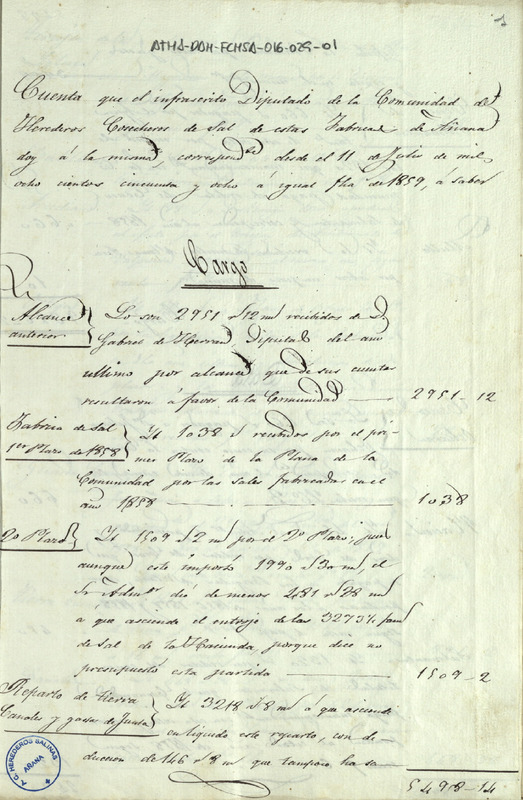 1
ATHA-DAH-FCHSA-016-029-01
Cuenta que el infrascrito Diputado de la Comunidad de
Herederos Cosecheros de Sal de estas Fabricas de Añana
doy á la misma, correspond.te desde el 11 de Julio de mil
ocho cientos cincuenta y ocho á igual fha de 1859, á saber
Cargo
Alcance anterior
Lo son 2751 rs 12 ms recibidos de Dn
Gabriel de Herran, Diputado del año
ultimo por alcance que de sus cuentas
resultaron á favor de la Comunidad 2751-12
Fabrica de Sal
1er Plazo de 1858
Yt 1038 rs recibidos por el pri-
mer Plazo de la Plana de la
Comunidad por las sales fabricadas en el
año 1858 1038
2o Plazo
Yt 1509 rs 2 ms por el 2o Plazo; pues
aunque este importó 1990 rs 30 ms, el
Sr Admor dio de menos 481 rs 28 ms
á que asciende el entrojo de las 3273 fans
de Sal de la Hacienda, porque dice no
presupuestó esta partida 1509-2
Reparto de tierra
Canales y gasto de Junta
Yt 3218 rs 8 ms á que asciende
en liquido este reparto, con de-
duccion de 146 rs 8 ms que tampoco ha sa-
T. C. HEREDEROS SALINAS
AÑANA